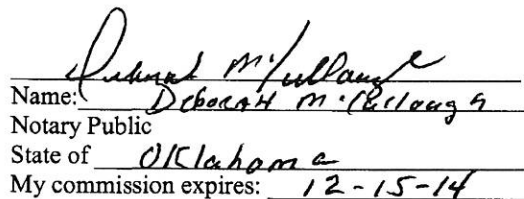 Deborah McCullough
Name: Deborah McCullough
Notary Public
State of Oklahoma
My commission expires: 12-15-14